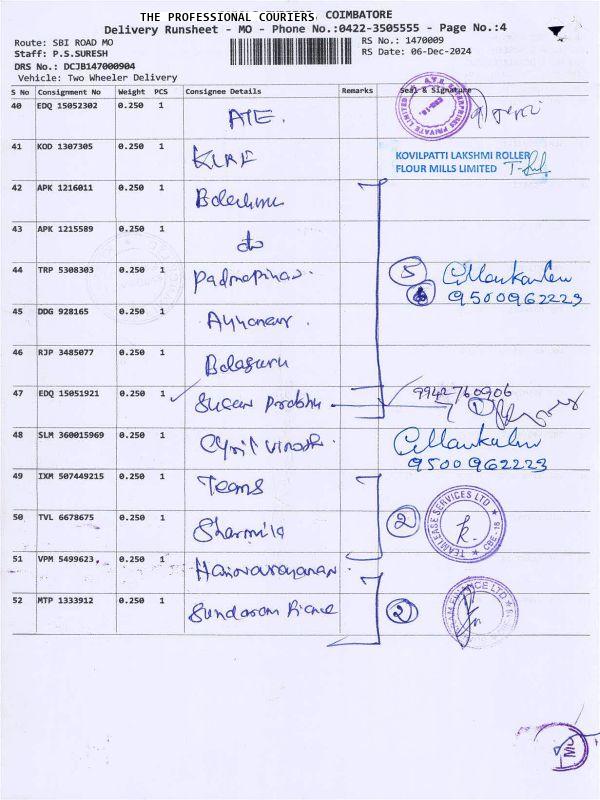 THE PROFESSIONAL COURIERS COIMBATORE
Delivery Runsheet - MO - Phone No.:0422-3505555 - Page No.:4
Route: SBI ROAD MO
Staff: P.S.SURESH
DRS No.: DCJB147000904
Vehicle: Two Wheeler Delivery
RS No.: 1470009
RS Date: 06-Dec-2024
S No Consignment No Weight PCS Consignee Details Remarks Seal & Signature
40 EDQ 15052302 0.250 1 ATE.
41 KOD 1307305 0.250 1 KLRF
KOVILPATTI LAKSHMI ROLLER
FLOUR MILLS LIMITED
42 APK 1216011 0.250 1
43 APK 1215589 0.250 1 do
44 TRP 5308303 0.250 1 5
9500962223
45 DDG 928165 0.250 1
46 RJP 3485077 0.250 1 Balaguru
47 EDQ 15051921 0.250 1 Susan Prabhu 9942760906
1
48 SLM 360015969 0.250 1 Cyril Vinoth.
9500962223
49 IXM 507449215 0.250 1 Teams
50 TVL 6678675 0.250 1 Sharmila 2
TEAMLEASE SERVICES LTD
CBE-18
51 VPM 5499623 0.250 1
52 MTP 1333912 0.250 1 2
MO